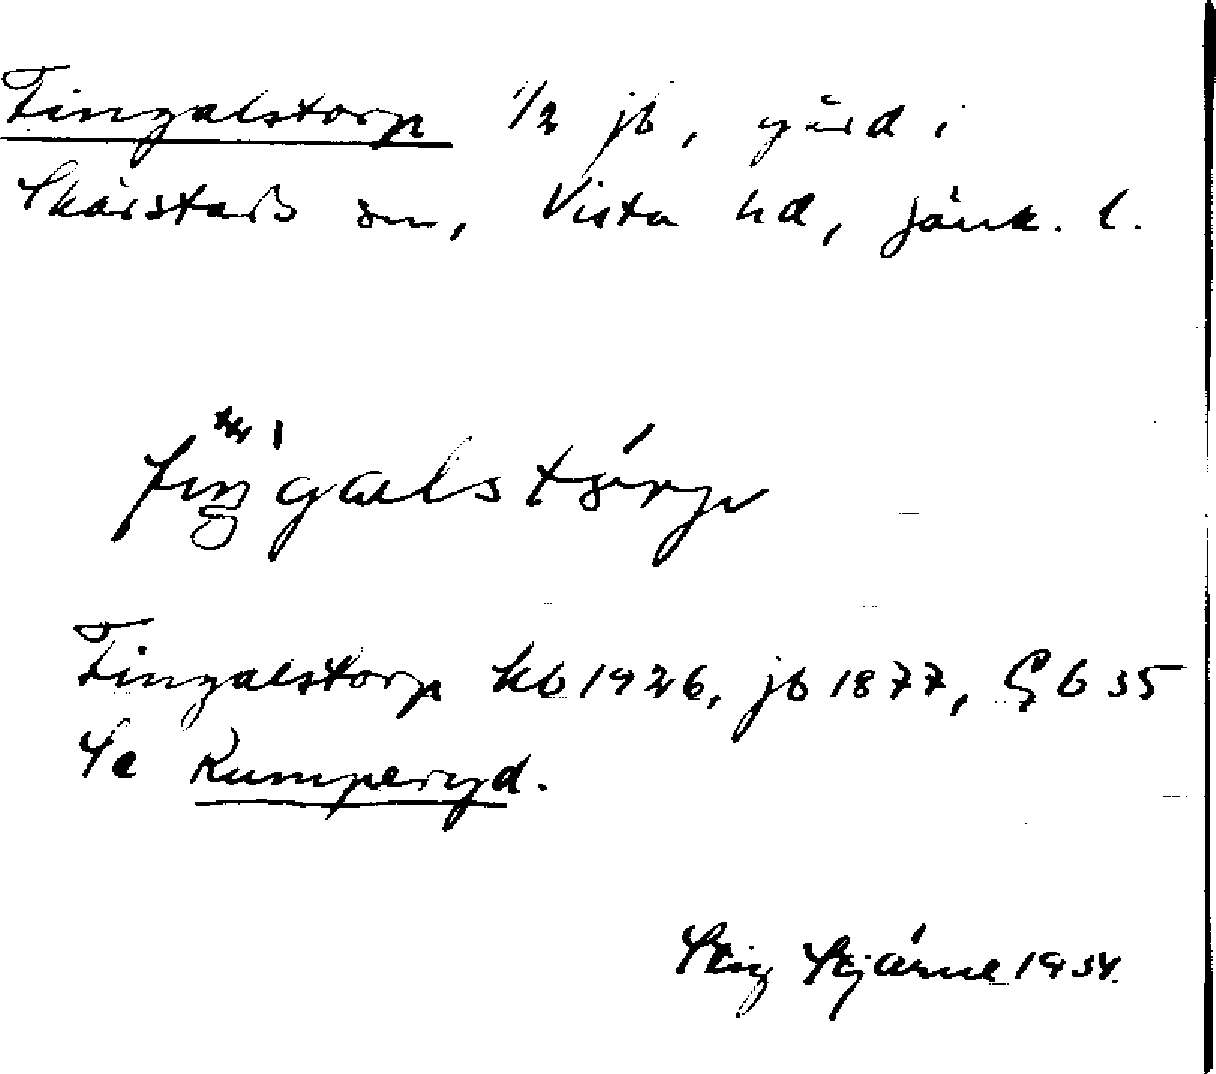 Fingalstorp 1/2 jb, gård i
Skärstads sn, Vista hd, Jönk. l.
Fingalstorp kb 1926, jb 1877, GK 6 35
Se Kumperyd.
Stig Stjärne 1934.